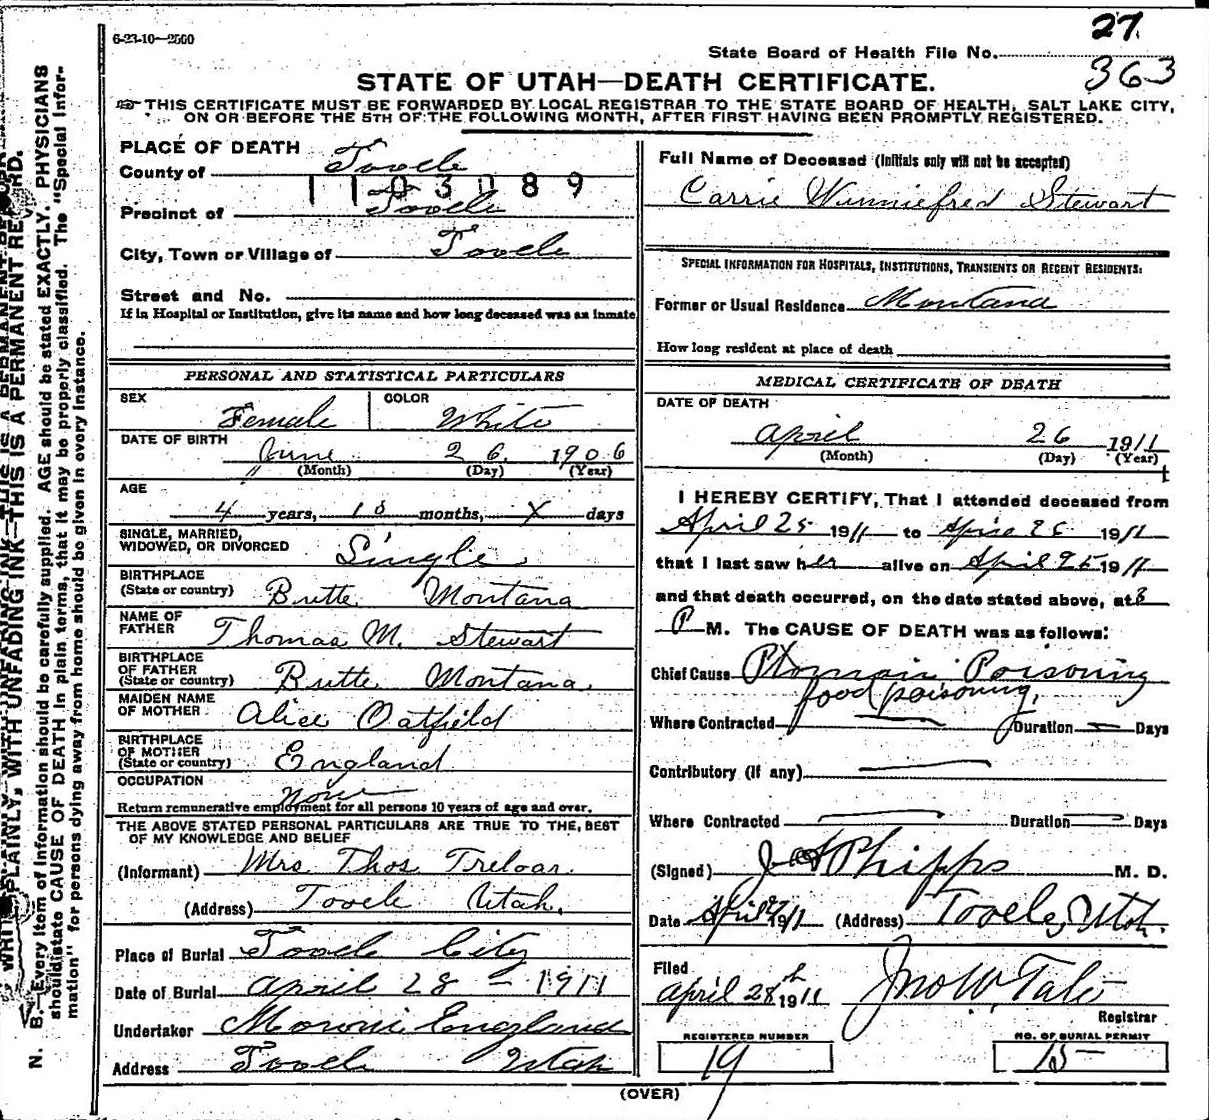 6-23-10—2500
27.
State Board of Health File No.
363
STATE OF UTAH—DEATH CERTIFICATE.
THIS CERTIFICATE MUST BE FORWARDED BY LOCAL REGISTRAR TO THE STATE BOARD OF HEALTH, SALT LAKE CITY,
ON OR BEFORE THE 5TH OF THE FOLLOWING MONTH, AFTER FIRST HAVING BEEN PROMPTLY REGISTERED.
PLACE OF DEATH
County of Tooele
1103089
Precinct of Tooele
City, Town or Village of Tooele
Street and No.
If in Hospital or Institution, give its name and how long deceased was an inmate
PERSONAL AND STATISTICAL PARTICULARS
SEX Female COLOR White
DATE OF BIRTH
June 26. 1906
(Month) (Day) (Year)
AGE
4 years, 10 months, X days
SINGLE, MARRIED,
WIDOWED, OR DIVORCED Single
BIRTHPLACE
(State or country) Butte Montana
NAME OF
FATHER Thomas M. Stewart
BIRTHPLACE
OF FATHER
(State or country) Butte Montana
MAIDEN NAME
OF MOTHER Alice Oatfield
BIRTHPLACE
OF MOTHER
(State or country) England
OCCUPATION
None
Return remunerative employment for all persons 10 years of age and over.
THE ABOVE STATED PERSONAL PARTICULARS ARE TRUE TO THE BEST
OF MY KNOWLEDGE AND BELIEF
(Informant) Mrs. Thos Treloar.
(Address) Tooele Utah.
Place of Burial Tooele City
Date of Burial April 28 - 1911
Undertaker Moroni England
Address Tooele Utah
Full Name of Deceased (Initials only will not be accepted)
Carrie Winniefred Stewart
SPECIAL INFORMATION FOR HOSPITALS, INSTITUTIONS, TRANSIENTS OR RECENT RESIDENTS:
Former or Usual Residence Montana
How long resident at place of death
MEDICAL CERTIFICATE OF DEATH
DATE OF DEATH
April 26 1911
(Month) (Day) (Year)
I HEREBY CERTIFY, That I attended deceased from
April 25 1911 to April 26 1911
that I last saw her alive on April 25 1911
and that death occurred, on the date stated above, at 8
P M. The CAUSE OF DEATH was as follows:
Chief Cause Ptomain Poisoning
food poisoning,
Where Contracted Duration Days
Contributory (if any)
Where Contracted Duration Days
(Signed) J A Phipps M. D.
Date April 1911 (Address) Tooele, Utah.
Filed
April 28th 1911 Jno W. Tate
Registrar
REGISTERED NUMBER
19
NO. OF BURIAL PERMIT
15
(OVER)
WRITE PLAINLY, WITH UNFADING INK—THIS IS A PERMANENT RECORD.
N. B.—Every item of information should be carefully supplied. AGE should be stated EXACTLY. PHYSICIANS
should state CAUSE OF DEATH in plain terms, that it may be properly classified. The "Special Infor-
mation" for persons dying away from home should be given in every instance.